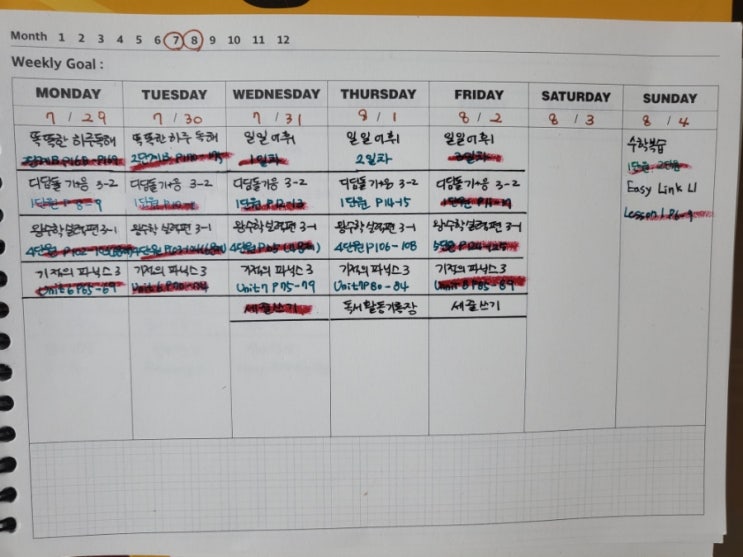 Month 1 2 3 4 5 6 7 8 9 10 11 12
Weekly Goal :
MONDAY TUESDAY WEDNESDAY THURSDAY FRIDAY SATURDAY SUNDAY
7 / 29 7 / 30 7 / 31 8 / 1 8 / 2 8 / 3 8 / 4
똑똑한 하루독해 똑똑한 하루 독해 일일어휘 일일어휘 일일어휘 수학복습
2단계B 1일차 2일차 3일차 1단원, 2단원
디딤돌 기+응 3-2 디딤돌 기+응 3-2 디딤돌 기+응 3-2 디딤돌 기+응 3-2 디딤돌 기+응 3-2 Easy Link L1
1단원 P 8-9 1단원 1단원 P12-13 1단원 P14-15 1단원 Lesson 1 P6-9
왕수학실력편 3-1 왕수학실력편 3-1 왕수학실력편 3-1 왕수학실력편 3-1 왕수학실력편 3-1
4단원 P102 4단원 4단원 P106-108 5단원
기적의 파닉스 3 기적의 파닉스 3 기적의 파닉스 3 기적의 파닉스 3 기적의 파닉스 3
Unit 6 P65-69 Unit 6 Unit 7 P75-79 Unit 7 P80-84 Unit 8 P85-89
세줄쓰기 독서활동기록장 세줄쓰기